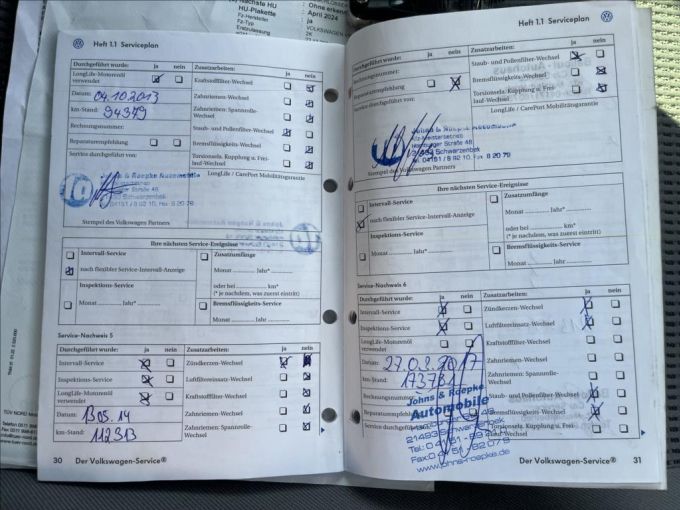 Nächste HU
HU-Plakette
April 2024
Heft 1.1 Serviceplan
Durchgeführt wurde: ja nein
LongLife-Motorenöl
verwendet
Datum: 04.10.2013
km-Stand: 94379
Rechnungsnummer:
Reparaturempfehlung
Service durchgeführt von:
Stempel des Volkswagen Partners
Zusatzarbeiten: ja nein
Kraftstofffilter-Wechsel
Zahnriemen-Wechsel
Zahnriemen, Spannrolle-
Wechsel
Staub- und Pollenfilter-Wechsel
Bremsflüssigkeits-Wechsel
Torsionsela. Kupplung u. Frei-
lauf-Wechsel
LongLife / CarePort Mobilitätsgarantie
Ihre nächsten Service-Ereignisse
Intervall-Service
nach flexibler Service-Intervall-Anzeige
Inspektions-Service
Monat ............ Jahr* ............
Zusatzumfänge
Monat ............ Jahr* ............
oder bei ............ km*
(* je nachdem, was zuerst eintritt)
Bremsflüssigkeits-Service
Service-Nachweis 5
Durchgeführt wurde: ja nein
Intervall-Service
Inspektions-Service
LongLife-Motorenöl
verwendet
Datum: 13 05. 14
km-Stand: 112313
Zusatzarbeiten: ja nein
Zündkerzen-Wechsel
Luftfiltereinsatz-Wechsel
Kraftstofffilter-Wechsel
Zahnriemen-Wechsel
Zahnriemen, Spannrolle-
Wechsel
30 Der Volkswagen-Service®
Heft 1.1 Serviceplan
Durchgeführt wurde: ja nein
Rechnungsnummer:
Reparaturempfehlung
Service durchgeführt von:
Johns & Roepke Automobile
Kfz-Meisterbetrieb
21493 Schwarzenbek
Stempel des Volkswagen Partners
Zusatzarbeiten: ja nein
Staub- und Pollenfilter-Wechsel
Bremsflüssigkeits-Wechsel
Torsionsela. Kupplung u. Frei-
lauf-Wechsel
LongLife / CarePort Mobilitätsgarantie
Ihre nächsten Service-Ereignisse
Intervall-Service
nach flexibler Service-Intervall-Anzeige
Inspektions-Service
Monat ............ Jahr* ............
Zusatzumfänge
Monat ............ Jahr* ............
oder bei ............ km*
(* je nachdem, was zuerst eintritt)
Bremsflüssigkeits-Service
Service-Nachweis 6
Durchgeführt wurde: ja nein
Intervall-Service
Inspektions-Service
LongLife-Motorenöl
verwendet
Datum:
km-Stand: 173781
Rechnungsnummer:
Reparaturempfehlung
Service durchgeführt
Johns & Roepke
Automobile
21493 Schwarzenbek
www.johns-roepke.de
Zusatzarbeiten: ja nein
Zündkerzen-Wechsel
Luftfiltereinsatz-Wechsel
Kraftstofffilter-Wechsel
Zahnriemen-Wechsel
Zahnriemen, Spannrolle-
Wechsel
Staub- und Pollenfilter-Wechsel
Bremsflüssigkeits-Wechsel
Torsionsela. Kupplung u. Frei-
lauf-Wechsel
Der Volkswagen-Service® 31